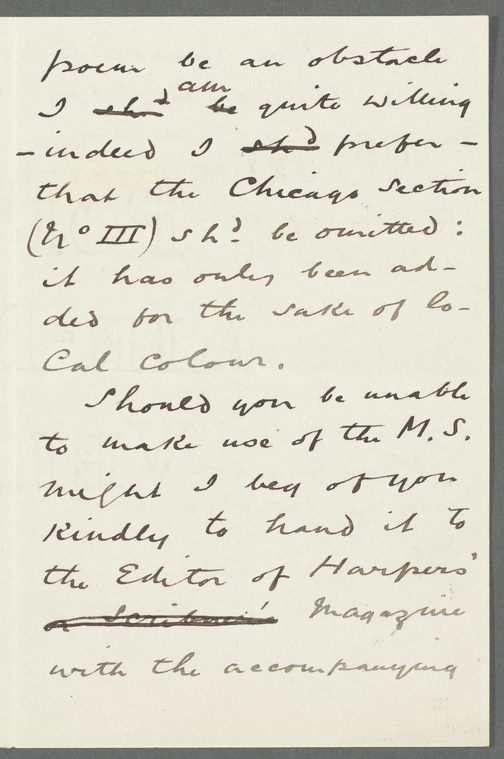 poem be an obstacle
I sh.d am be quite willing
- indeed I sh.d prefer -
that the Chicago Section
(No III) sh.d be omitted:
it has only been ad-
ded for the sake of lo-
cal colour.
Should you be unable
to make use of the M.S.
might I beg of you
kindly to hand it to
the Editor of Harpers'
or Scribner's Magazine
with the accompanying